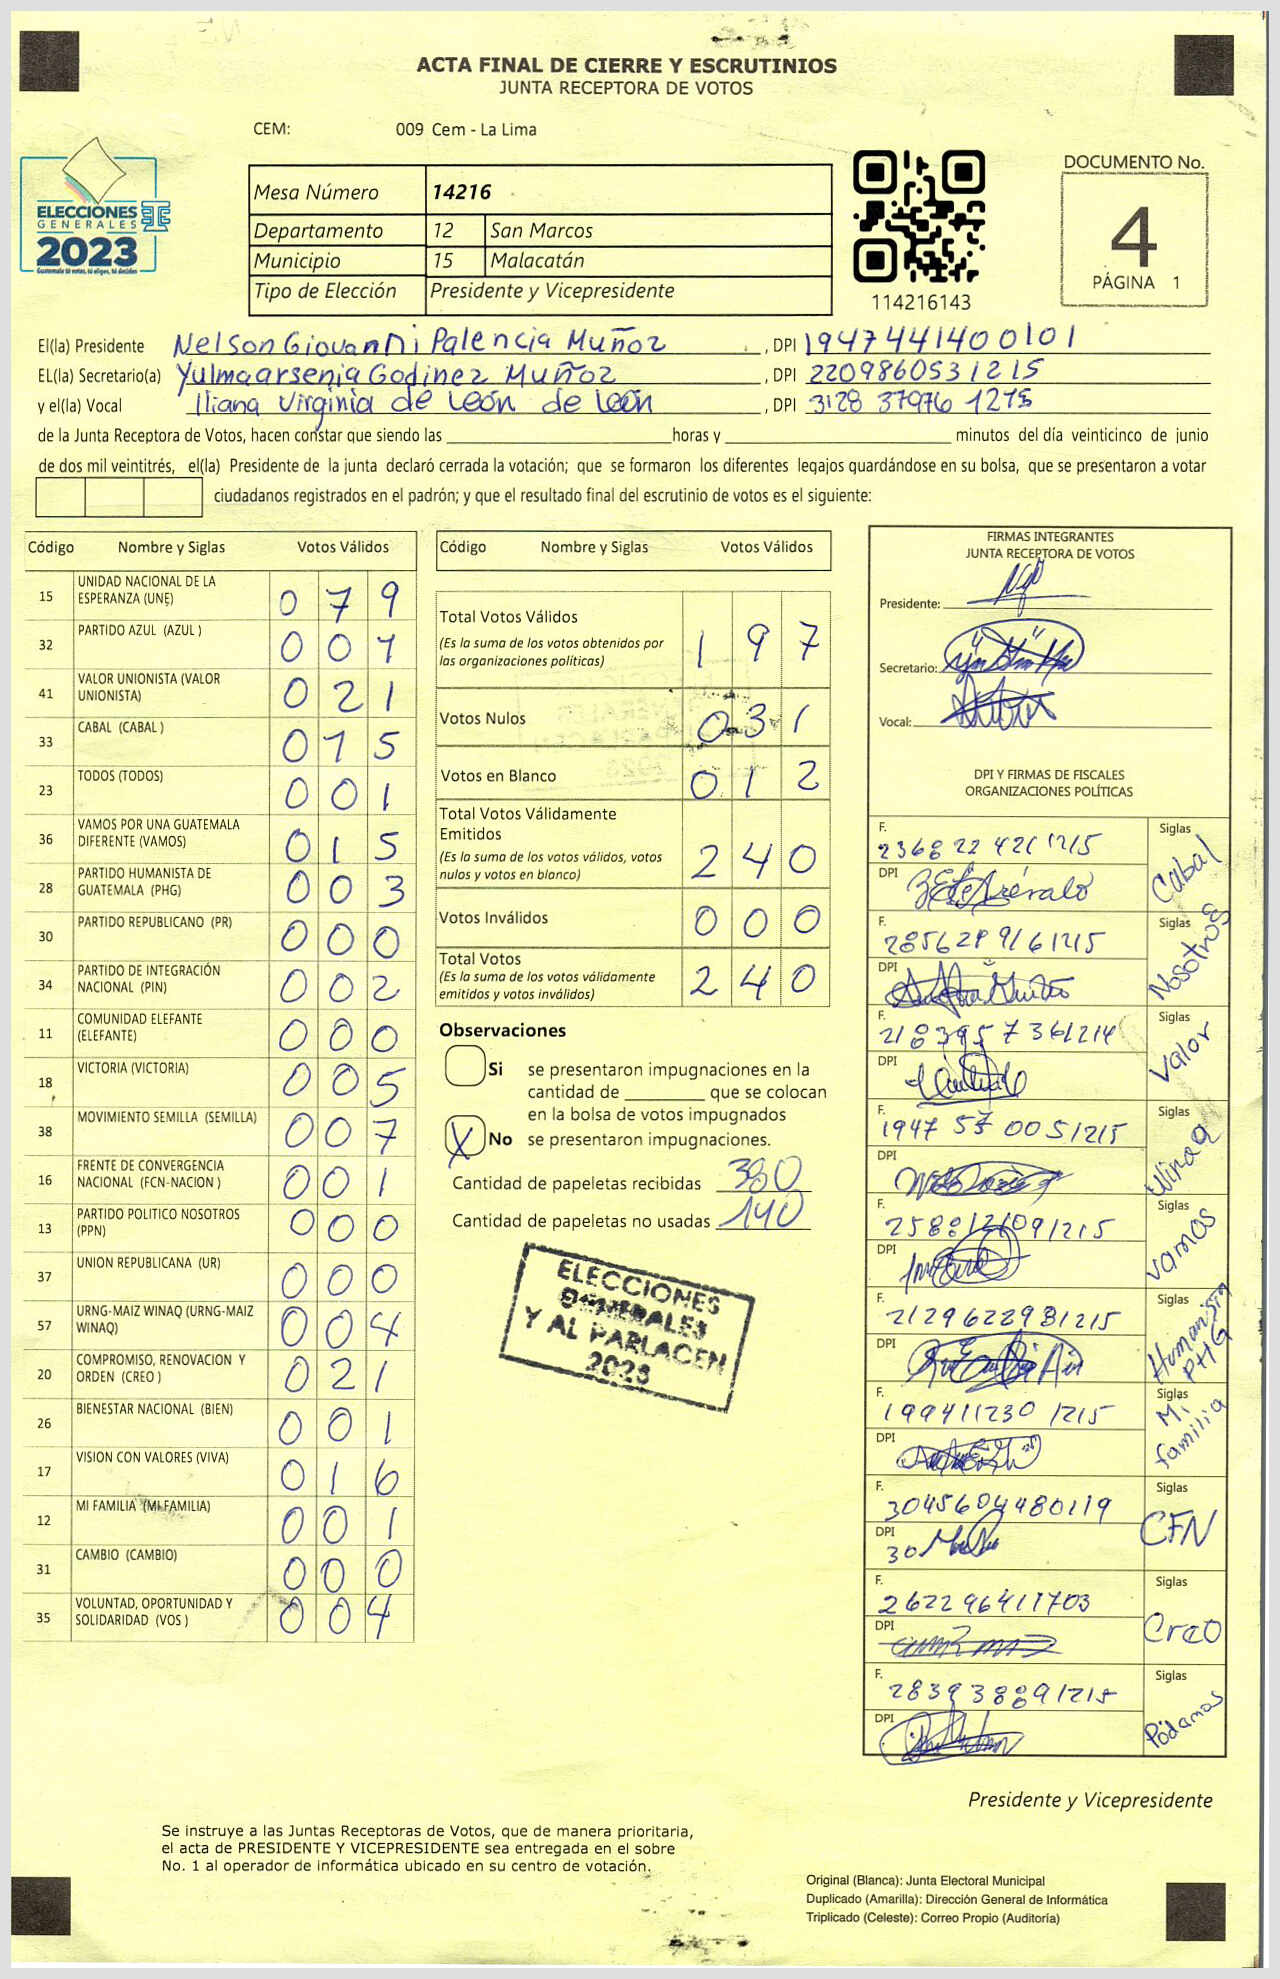 ACTA FINAL DE CIERRE Y ESCRUTINIOS
JUNTA RECEPTORA DE VOTOS
CEM: 009 Cem - La Lima
ELECCIONES
GENERALES
2023
Guatemala tú votas, tú eliges, tú decides
Mesa Número 14216
Departamento 12 San Marcos
Municipio 15 Malacatán
Tipo de Elección Presidente y Vicepresidente
114216143
DOCUMENTO No.
4
PÁGINA 1
El(la) Presidente Nelson Giovanni Palencia Muñoz, DPI 1947441400101
EL(la) Secretario(a) Yulmaarsenia Godinez Muñoz, DPI 2209860531215
y el(la) Vocal Iliana Virginia de León de León, DPI 3128 37976 1215
de la Junta Receptora de Votos, hacen constar que siendo las ______ horas y ______ minutos del día veinticinco de junio
de dos mil veintitrés, el(la) Presidente de la junta declaró cerrada la votación; que se formaron los diferentes legajos guardándose en su bolsa, que se presentaron a votar
ciudadanos registrados en el padrón; y que el resultado final del escrutinio de votos es el siguiente:
Código Nombre y Siglas Votos Válidos
15 UNIDAD NACIONAL DE LA ESPERANZA (UNE) 0 7 9
32 PARTIDO AZUL (AZUL ) 0 0 1
41 VALOR UNIONISTA (VALOR UNIONISTA) 0 2 1
33 CABAL (CABAL ) 0 1 5
23 TODOS (TODOS) 0 0 1
36 VAMOS POR UNA GUATEMALA DIFERENTE (VAMOS) 0 1 5
28 PARTIDO HUMANISTA DE GUATEMALA (PHG) 0 0 3
30 PARTIDO REPUBLICANO (PR) 0 0 0
34 PARTIDO DE INTEGRACIÓN NACIONAL (PIN) 0 0 2
11 COMUNIDAD ELEFANTE (ELEFANTE) 0 0 0
18 VICTORIA (VICTORIA) 0 0 5
38 MOVIMIENTO SEMILLA (SEMILLA) 0 0 7
16 FRENTE DE CONVERGENCIA NACIONAL (FCN-NACION ) 0 0 1
13 PARTIDO POLITICO NOSOTROS (PPN) 0 0 0
37 UNION REPUBLICANA (UR) 0 0 0
57 URNG-MAIZ WINAQ (URNG-MAIZ WINAQ) 0 0 4
20 COMPROMISO, RENOVACION Y ORDEN (CREO ) 0 2 1
26 BIENESTAR NACIONAL (BIEN) 0 0 1
17 VISION CON VALORES (VIVA) 0 1 6
12 MI FAMILIA (MI FAMILIA) 0 0 1
31 CAMBIO (CAMBIO) 0 0 0
35 VOLUNTAD, OPORTUNIDAD Y SOLIDARIDAD (VOS ) 0 0 4
Código Nombre y Siglas Votos Válidos
Total Votos Válidos 1 9 7
(Es la suma de los votos obtenidos por
las organizaciones políticas)
Votos Nulos 0 3 1
Votos en Blanco 0 1 2
Total Votos Válidamente
Emitidos 2 4 0
(Es la suma de los votos válidos, votos
nulos y votos en blanco)
Votos Inválidos 0 0 0
Total Votos 2 4 0
(Es la suma de los votos válidamente
emitidos y votos inválidos)
Observaciones
Si se presentaron impugnaciones en la
cantidad de ________ que se colocan
en la bolsa de votos impugnados
X No se presentaron impugnaciones.
Cantidad de papeletas recibidas 380
Cantidad de papeletas no usadas 140
ELECCIONES
GENERALES
Y AL PARLACEN
2023
FIRMAS INTEGRANTES
JUNTA RECEPTORA DE VOTOS
Presidente:
Secretario:
Vocal:
DPI Y FIRMAS DE FISCALES
ORGANIZACIONES POLÍTICAS
F. 236822 4211215 Siglas Cabal
DPI
F. 2856299161215 Siglas Nosotros
DPI
F. 2183957361214 Siglas Valor
DPI
F. 1947 57 0051215 Siglas Winaq
DPI
F. 2588121091215 Siglas Vamos
DPI
F. 2129622981215 Siglas Humanista PHG
DPI
F. 199411230 1215 Siglas Mi familia
DPI
F. 3045604480119 Siglas CFN
DPI 30
F. 2622964111703 Siglas Creo
DPI
F. 2839388891215 Siglas Pódamos
DPI
Presidente y Vicepresidente
Se instruye a las Juntas Receptoras de Votos, que de manera prioritaria,
el acta de PRESIDENTE Y VICEPRESIDENTE sea entregada en el sobre
No. 1 al operador de informática ubicado en su centro de votación.
Original (Blanca): Junta Electoral Municipal
Duplicado (Amarilla): Dirección General de Informática
Triplicado (Celeste): Correo Propio (Auditoría)